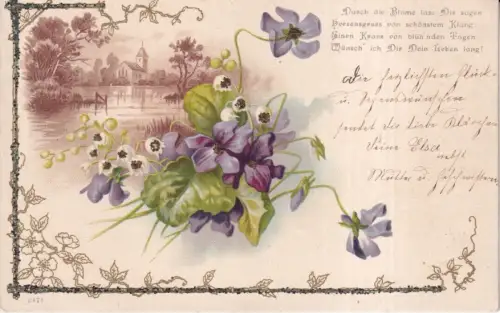 Durch die Blume lass Dir sagen
Herzensgruss von schönstem Klang:
Einen Kranz von blüh'nden Tagen
Wünsch' ich Dir Dein Leben lang!
Die herzlichsten Glück-
u. Segenswünsche
sendet die liebe Klärchen
Deine Elsa
nebst
Mutter u. Geschwistern